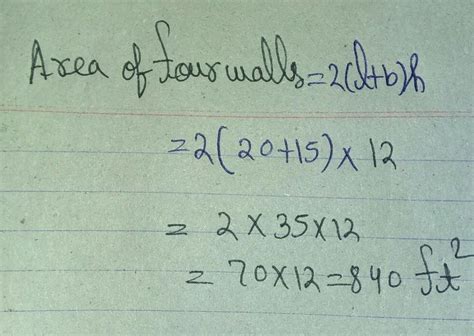 Area of four walls = 2(l+b)h
= 2(20+15) × 12
= 2 × 35 × 12
= 70 × 12 = 840 ft²